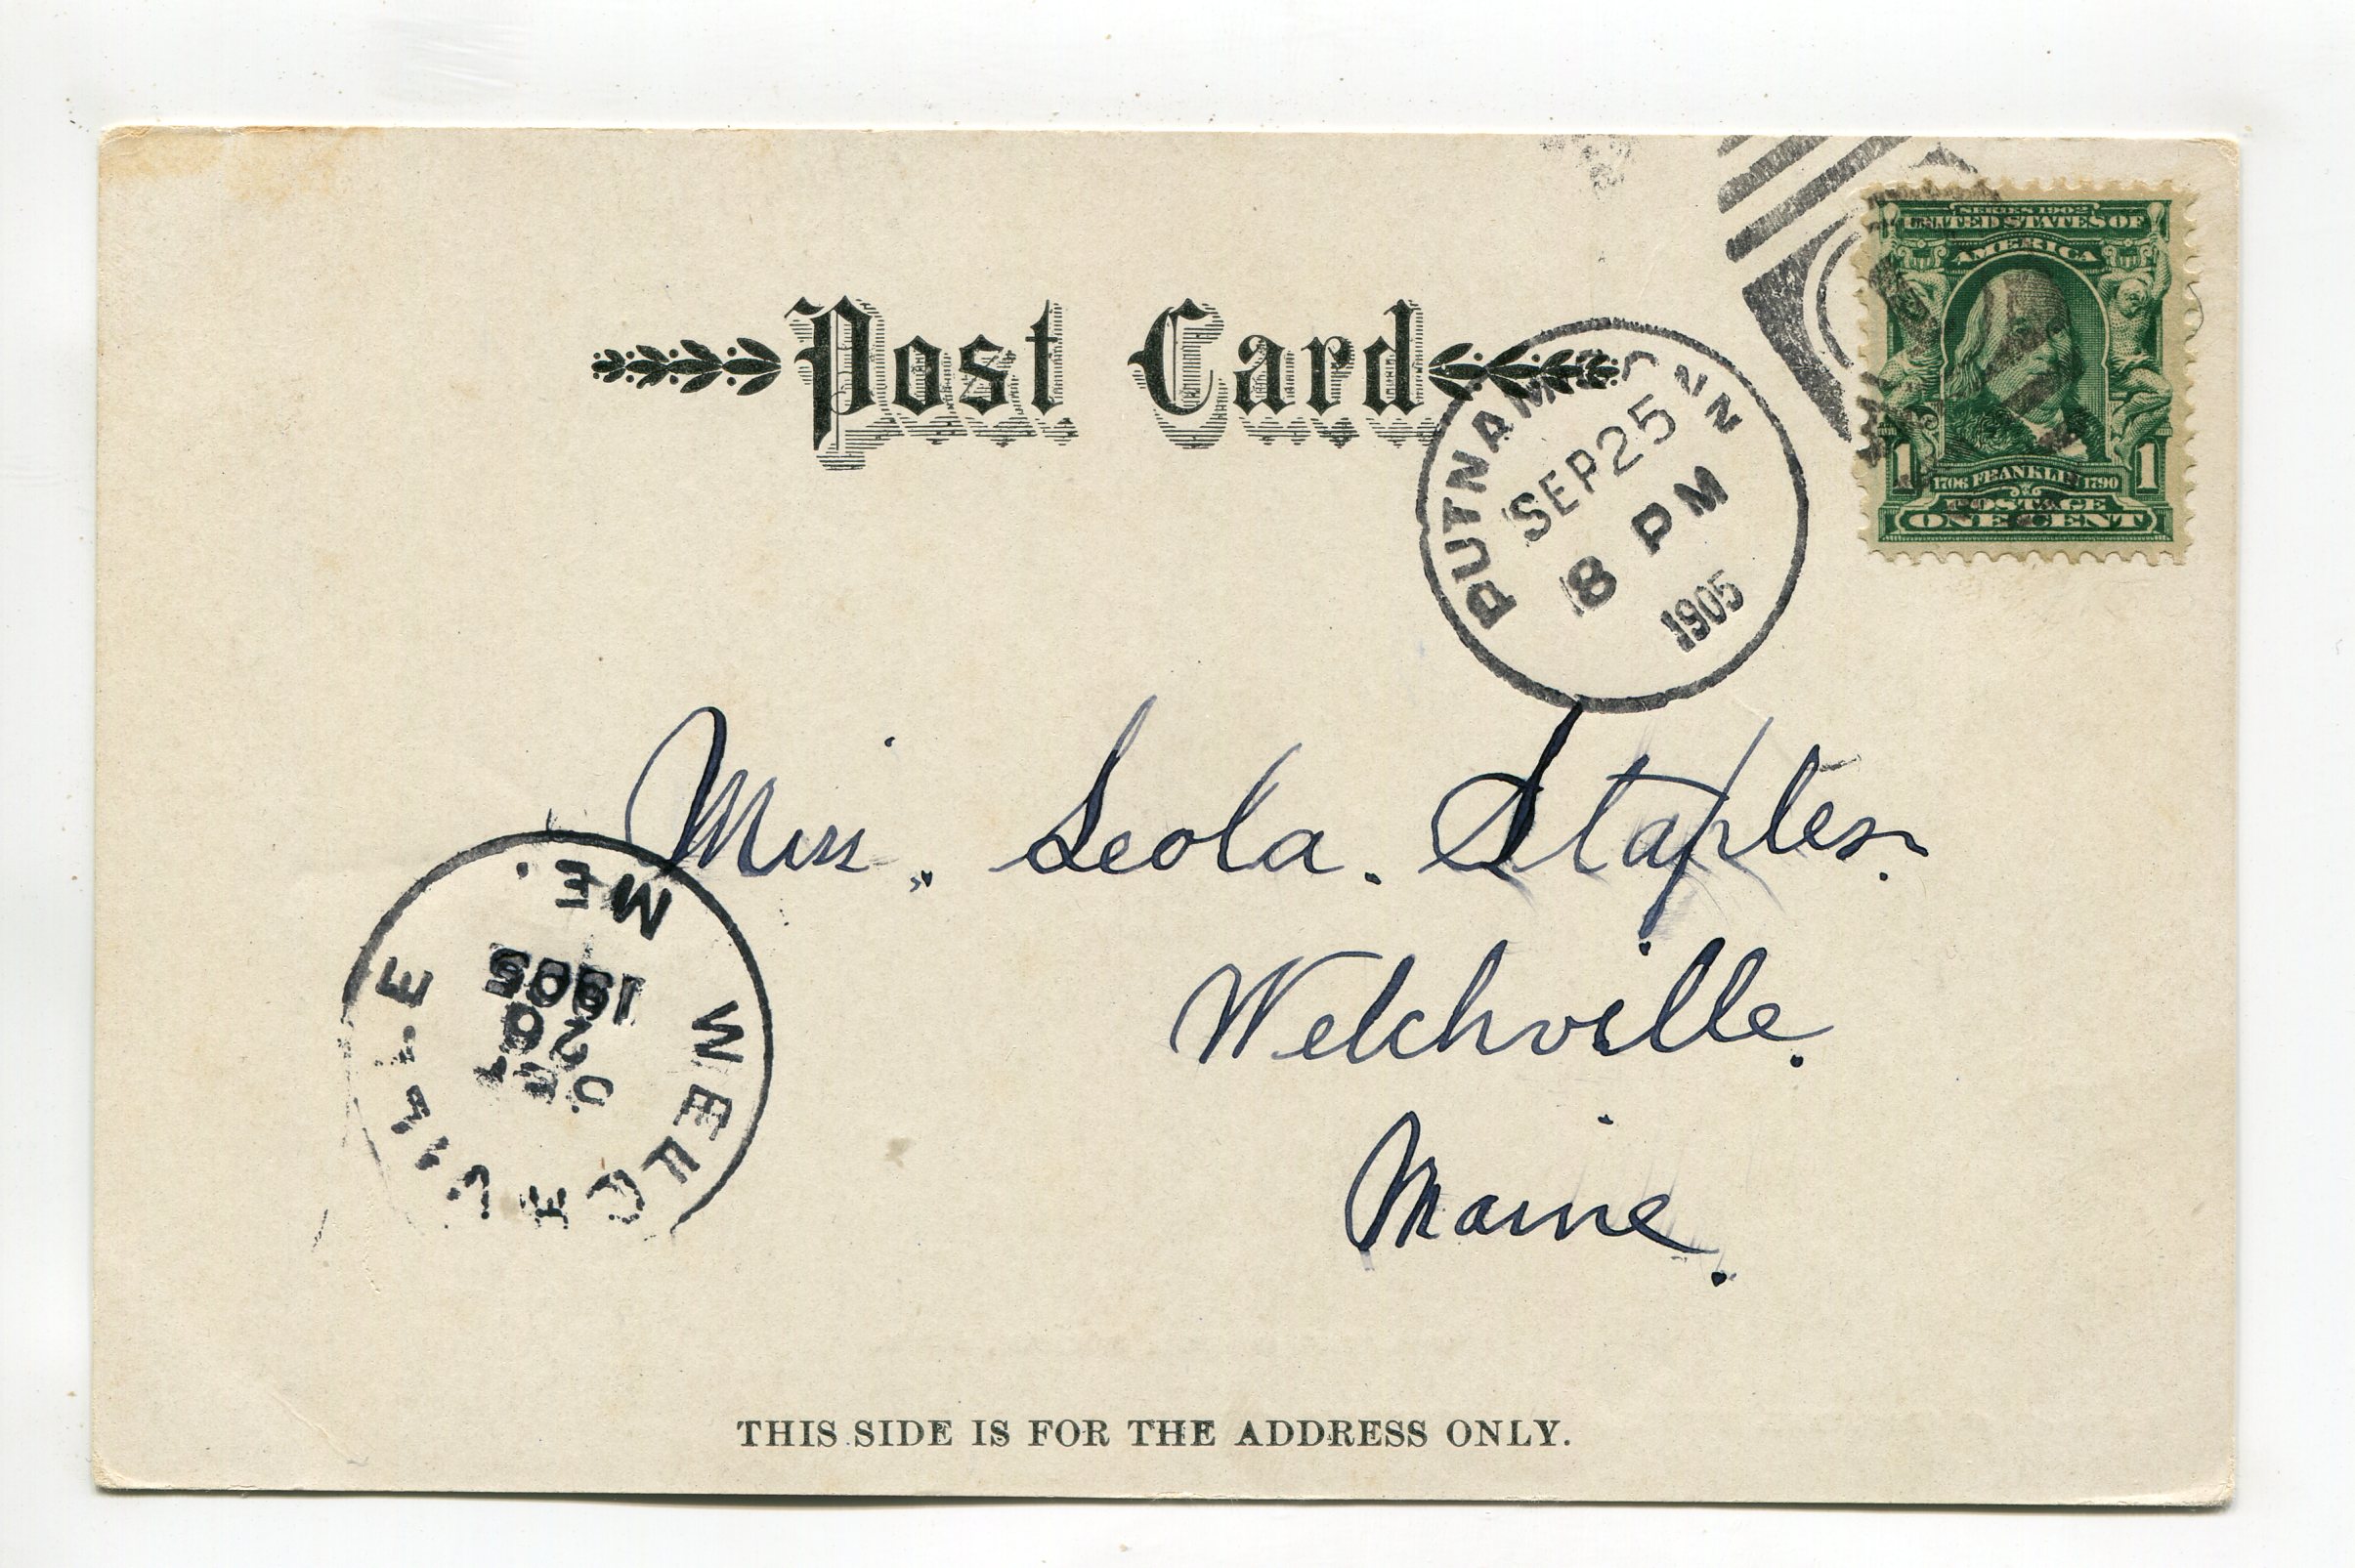 Post Card
SERIES 1902
UNITED STATES OF
AMERICA
1 1706 FRANKLIN 1790 1
POSTAGE
ONE CENT
PUTNAM CONN
SEP 25
8 PM
1905
Miss. Leola. Staples.
Welchville.
Maine.
WELCHVILLE ME.
1905
THIS SIDE IS FOR THE ADDRESS ONLY.